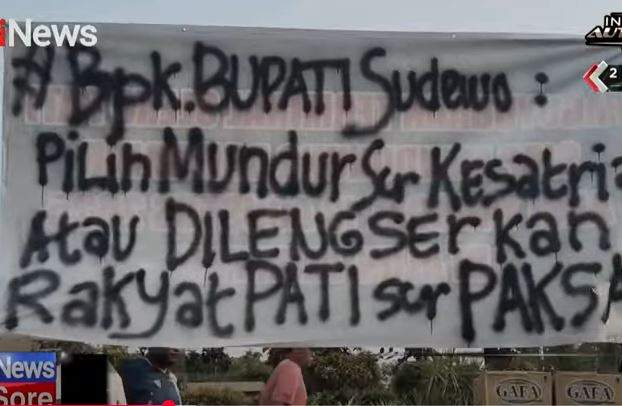 iNews
IN
AUT
2
# Bpk. BUPATI Sudewo :
PiLih Mundur Scr Kesatria
Atau DILENGSERkan
Rakyat PATI scr PAKSA
News
Sore
GAFA GAFA